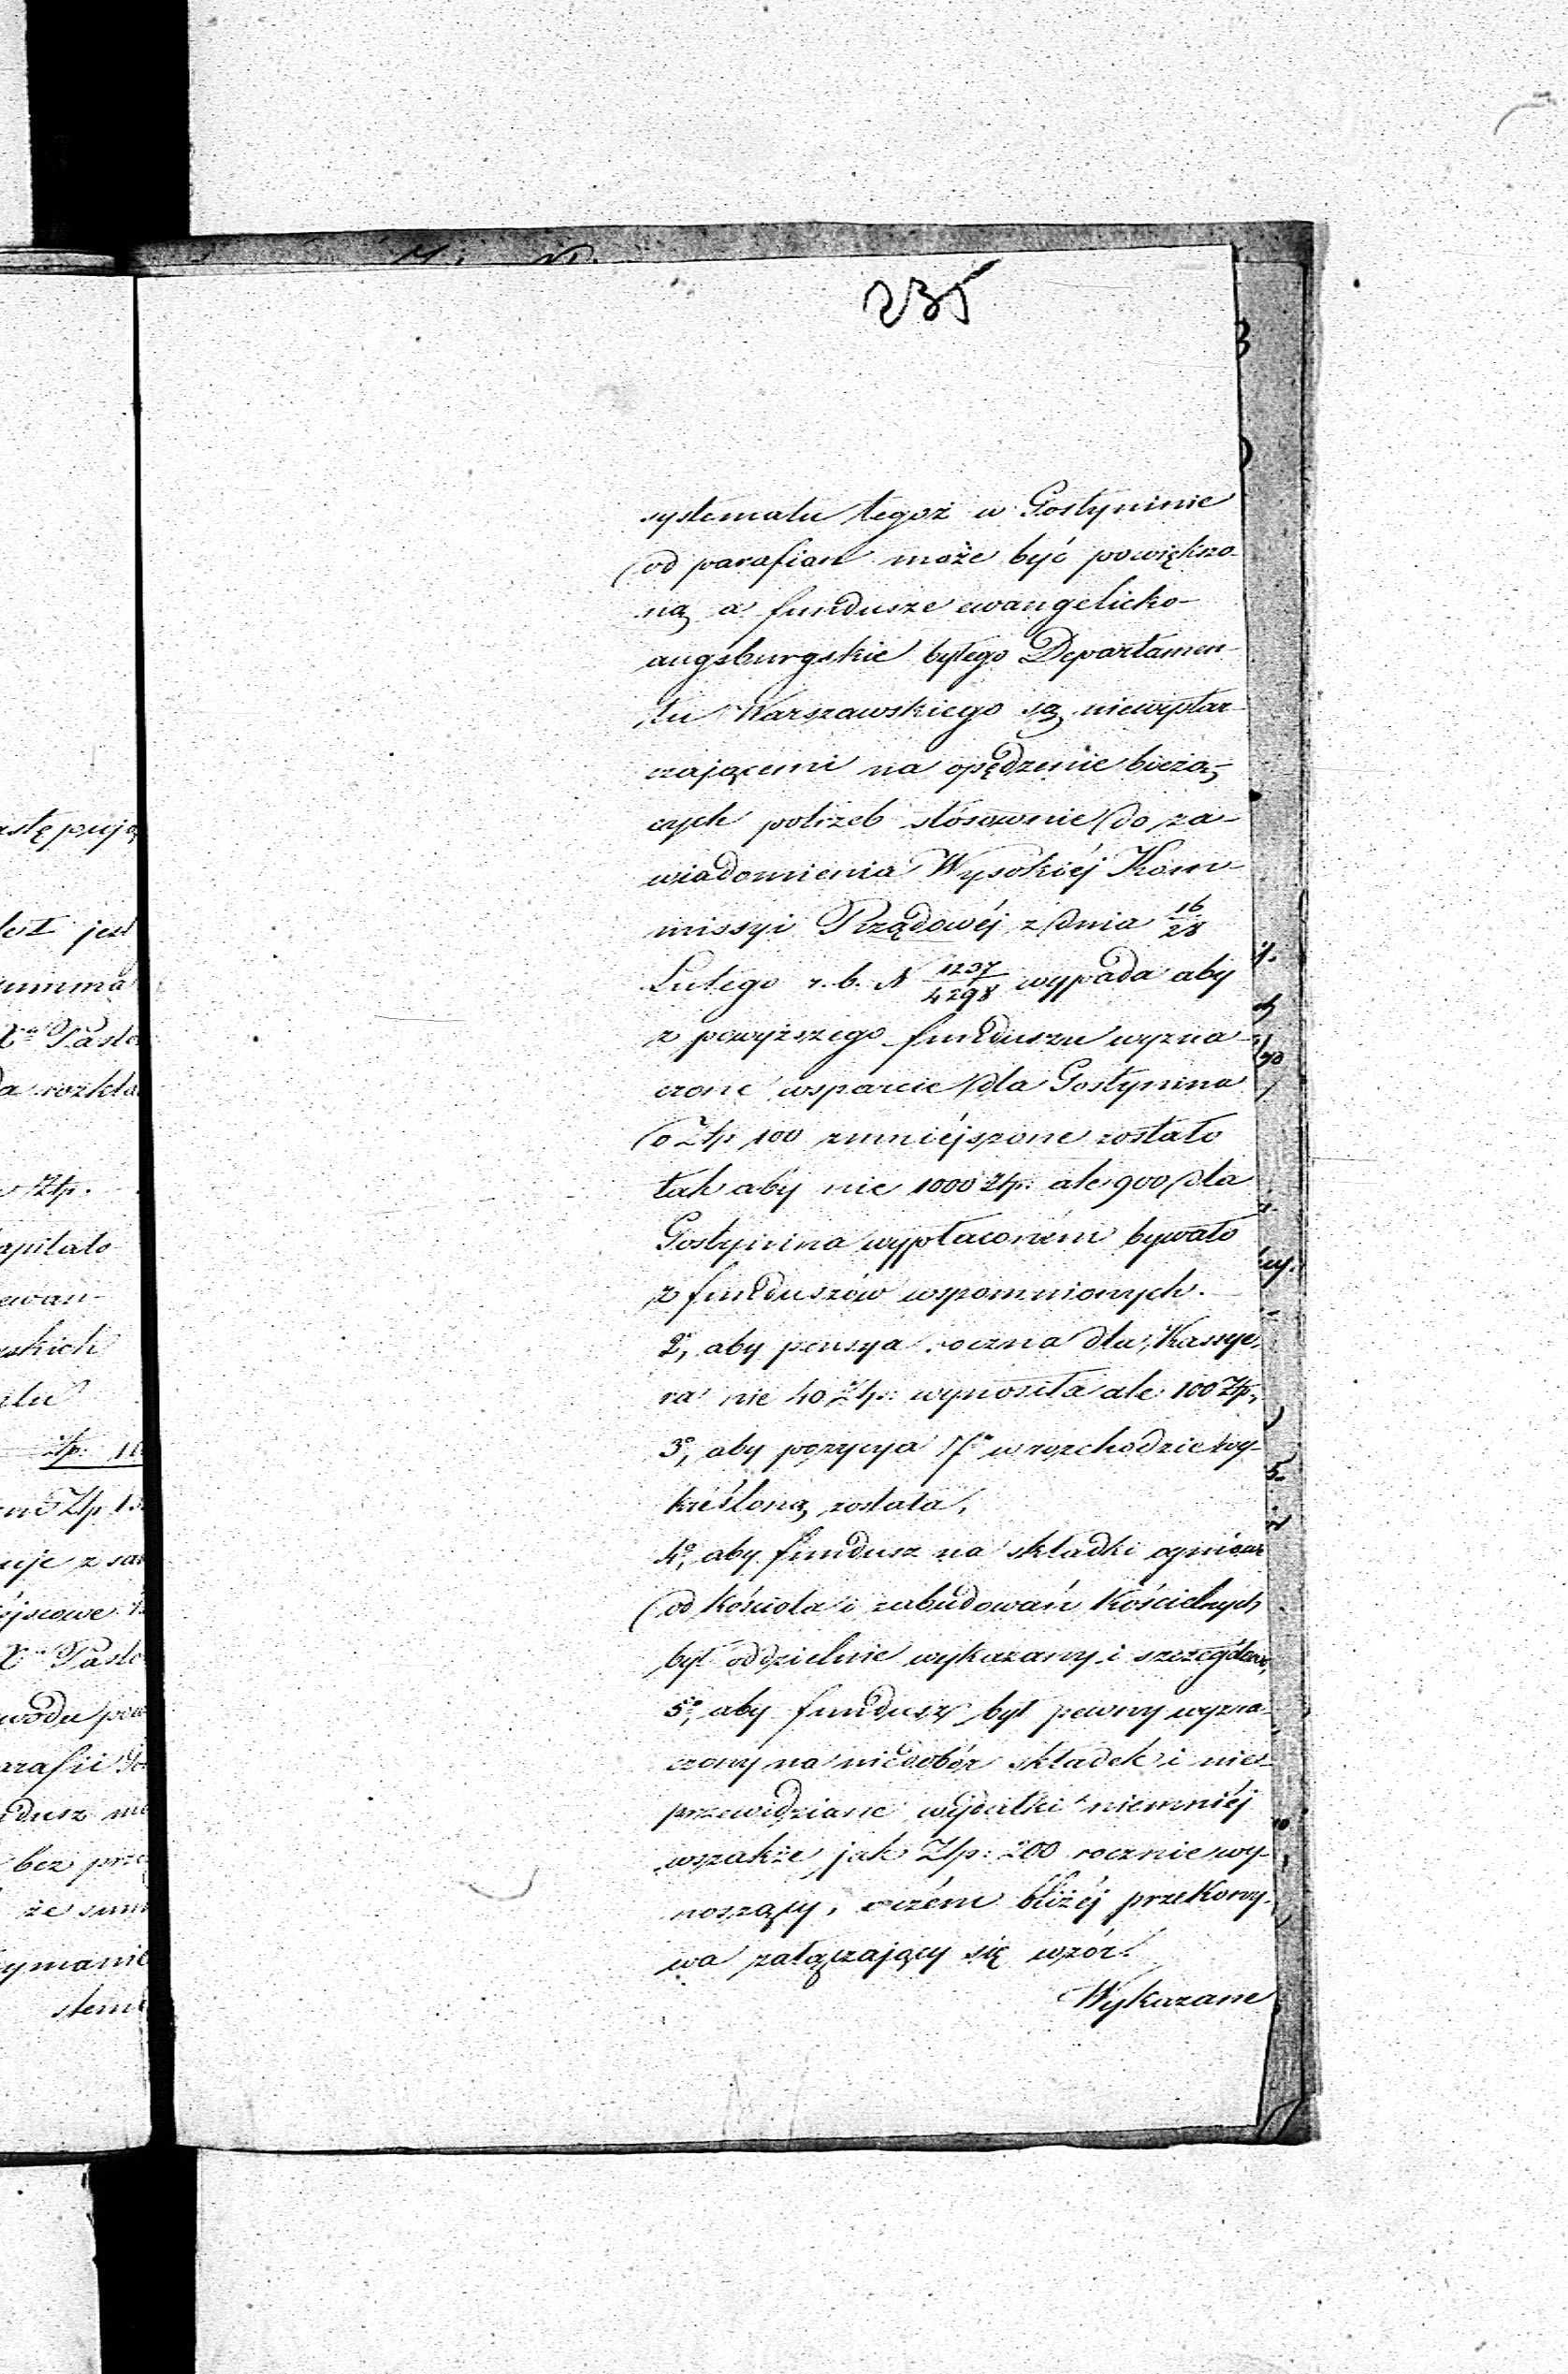 235
systematu tegoż w Gostyninie
od parafian może być powiększo-
ną a fundusze ewangelicko-
augsburgskie byłego Departamen-
tu Warszawskiego są niewystar-
czającemi na opędzenie bieżą-
cych potrzeb stósownie do za-
wiadomienia Wysokiéj Kom-
missyi Rządowéj z dnia 16/28
Lutego r. b. N 1237/4298 wypada aby
z powyższego funduszu wyzna-
czone wsparcie dla Gostynina
o Złp 100 zmniéjszone zostało
tak aby nie 1000 Złp. ale 900 dla
Gostynina wypłaconém bywało
z funduszów wspomnionych.
2º, aby pensya roczna dla Kassye-
ra nie 40 Złp: wynosiła ale 100 Złp,
3º, aby pozycya 17ª w rozchodzie wy-
kréśloną została,
4º, aby fundusz na składki ogniowe
od kościoła i zabudowań Kościelnych
był oddzielnie wykazany i szczegółowo,
5º, aby fundusz był pewny wyzna-
czony na niedobór składek i nie-
przewidziane wydatki niemniéj
wszakże jak Złp: 200 rocznie wy-
noszący, o czém bliżéj przekony-
wa załączający się wzór.
Wykazane